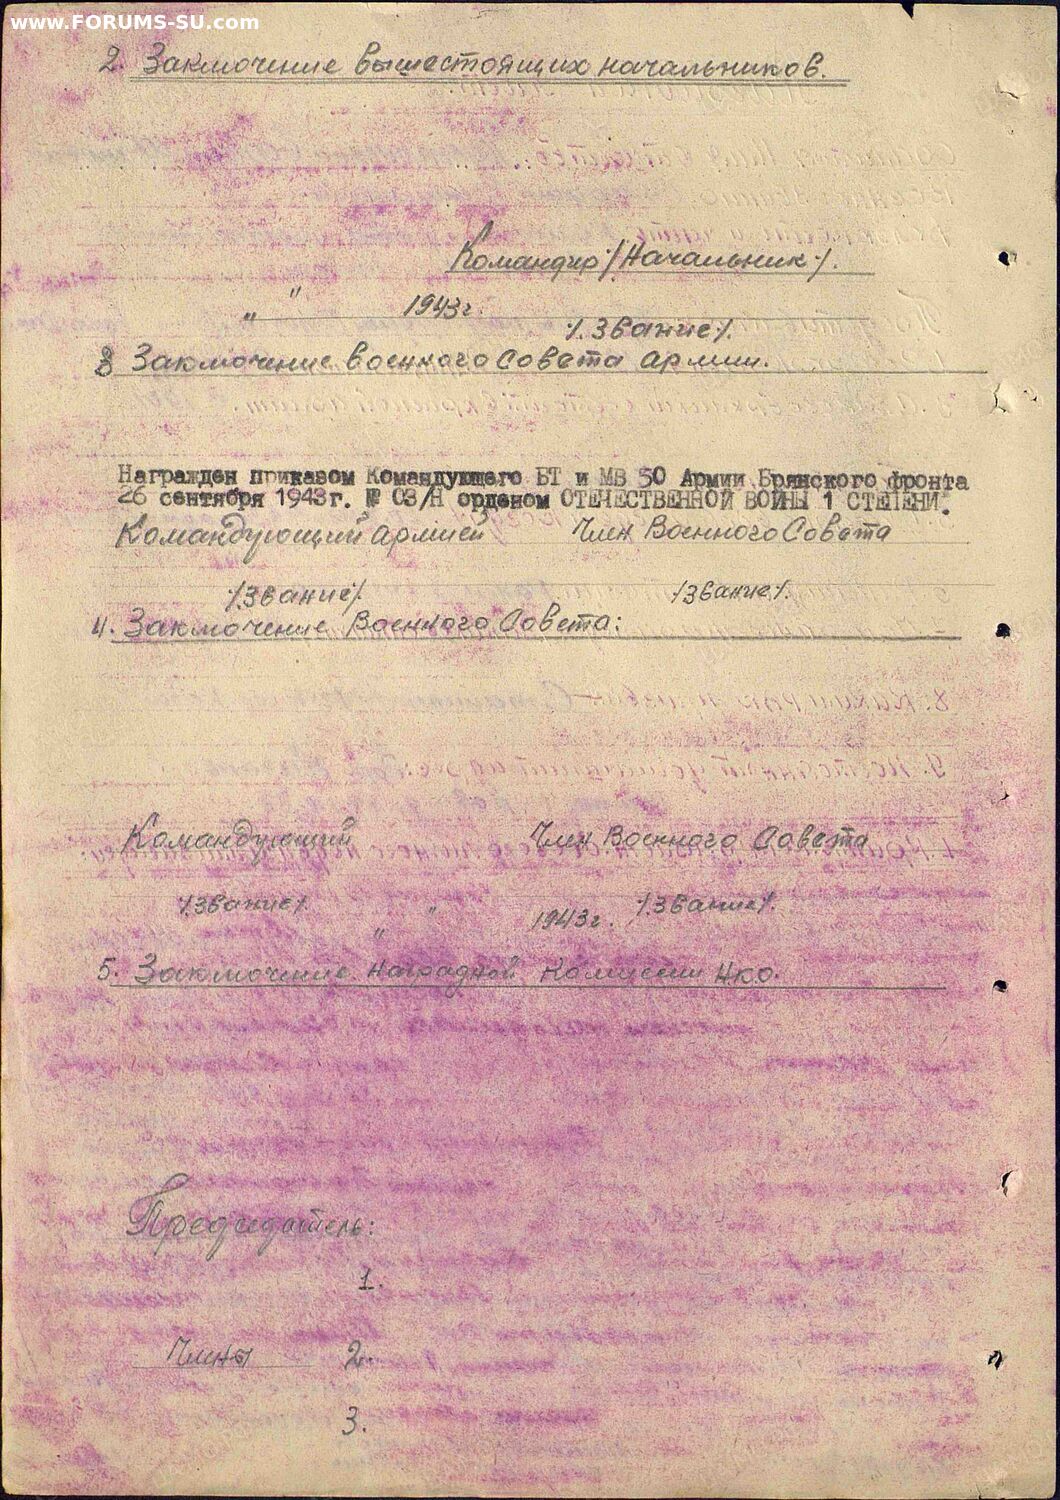 www.FORUMS-SU.com
2. Заключение вышестоящих начальников.
Командир /Начальник/.
" " 1943г.
/.Звание/.
3 Заключение военного Совета армии.
Награжден приказом Командующего БТ и МВ 50 Армии Брянского фронта
26 сентября 1943 г. № 03/Н орденом ОТЕЧЕСТВЕННОЙ ВОЙНЫ 1 СТЕПЕНИ.
Командующий армией Член Военного Совета
/.Звание/. /Звание/.
4. Заключение Военного Совета:
Командующий Член Военного Совета
/.Звание/. " " 1943г. /.Звание/.
5. Заключение Наградной Комиссии НКО.
Председатель:
1.
Члены 2.
3.